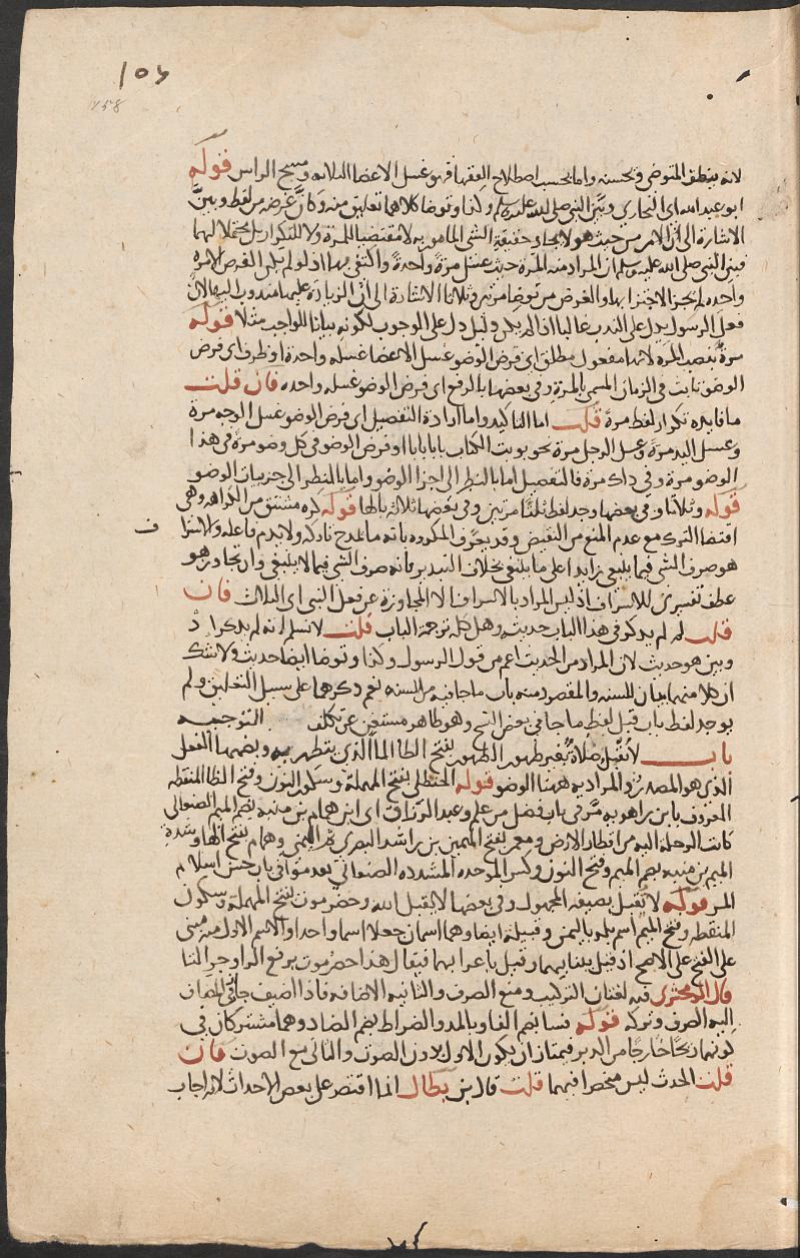 ١٥٤
لانه ينظف المتوضي ويحسنه واما بحسب اصطلاح الفقها فهو غسل الاعضا الثلاثه ومسح الراس قوله
ابو عبد الله اي البخاري وبين النبي صلى الله عليه وسلم وكذا وتوضا كلاهما تعليق منه وكان غرضه من لفظ وبين
الاشارة الى ان الامر من حيث هو لايجاد حقيقة الشي المامور به لا مقتضيا للمرة ولا للتكرار بل محتملا لهما
فبين النبي صلى الله عليه وسلم ان المراد منه المرة حيث غسل مرة واحدة واكتفي بها اذ لو لم يكن الفرض الا مرة
واحده لم يجز الاجتزا بها والغرض من توضا مرتين وثلاثا الاشارة الى ان الزيادة عليها مندوب اليها لان
فعل الرسول يدل على الندب غالبا اذا لم يكن دليل دل على الوجوب لكونه بيانا للواجب مثلا قوله
مرة بنصب المرة لانها مفعول مطلق اي فرض الوضو غسل الاعضا غسله واحدة او ظرف اي فرض
الوضو ثابت في الزمان المسمى بالمرة وفي بعضها بالرفع اي فرض الوضو غسله واحده فان قلت
ما فايده تكرار لفظ مرة قلت اما التاكيد واما ارادة التفصيل اي فرض الوضو غسل الوجه مرة
وغسل اليد مرة وغسل الرجل مرة نحو بوبت الكتاب بابا بابا او فرض الوضو في كل وضو مرة في هذا
الوضو مرة وفي ذاك مرة فالتفصيل اما بالنظر الى اجزا الوضو واما بالنظر الى جزييات الوضو
قوله وثلاثا وفي بعضها وجد لفظ ثلثا مرتين وفي بعضها ثلاثه بالها قوله كره مشتق من الكراهه وهي
اقتضا الترك مع عدم المنع من النقيض وقد يعرف المكروه بانه ما يمدح تاركه ولا يذم فاعله والاسراف
هو صرف الشي فيما ينبغي زايدا على ما ينبغي بخلاف التبذير فانه صرف الشي فيما لا ينبغي وان تجاوز هو
عطف تفسيري للاسراف اذ ليس المراد بالاسراف الا المجاوزة عن فعل النبي اي الثلاث فان
قلت لم لم يذكر في هذا الباب حديث وهل كله ترجمة الباب قلت لا نسلم انه لم يذكر اذ
وبين هو حديث لان المراد من الحديث اعم من قول الرسول وكذا وتوضا ايضا حديث ولا شك
ان كلا منهما بيان للسنه والمقصود منه باب ما جا فيه من السنه نعم ذكرهما على سبيل التعليق ولم
يوجد لفظ باب قبل لفظ ما جا في بعض النسخ وهو ظاهر مستغن عن تكلف التوجيه
باب لا تقبل صلاة بغير طهور الطهور بفتح الطا الما الذي يتطهر به وبضمها الفعل
الذي هو المصدر والمراد به ههنا الوضو قوله الحنظلي بفتح المهملة وسكون النون وفتح الظا المنقطه
المعروف بابن راهويه مر في باب فضل من علم وعبد الرزاق اي ابن همام بن منبه بضم الميم الصنعاني
كانت الرحلة اليه من اقطار الارض ومعمر بفتح الميمين بن راشد البصري ثم اليمني وهمام بفتح الها وشدة
الميم بن منبه بضم الميم وفتح النون وكسر الموحده المشدده الصنعاني تقدموا في باب حسن اسلام
المر قوله لا تقبل بصيغه المجهول وفي بعضها لا يقبل الله وحضرموت بفتح المهملة وسكون
المنقطه وفتح الميم اسم بلد باليمن وقبيلة ايضا وهما اسمان جعلا اسما واحدا والاسم الاول منه مبني
على الفتح على الاصح اذ قيل ببنايهما وقيل باعرابهما فيقال هذا حضرموت برفع الرا وجر التا
قال الزمخشري فيه لغتان التركيب ومنع الصرف والثانية الاضافه فاذا اضيف جاز في المضاف
اليه الصرف وتركه قوله فسا بضم الفا وبالمد والضراط بضم الضاد وهما مشتركان في
كونهما ريحا خارجا من الدبر فيمتازان بكون الاول بدون الصوت والثاني مع الصوت فان
قلت الحدث ليس منحصرا فيهما قلت قال ابن بطال انما اقتصر على بعض الاحداث لانه اجاب